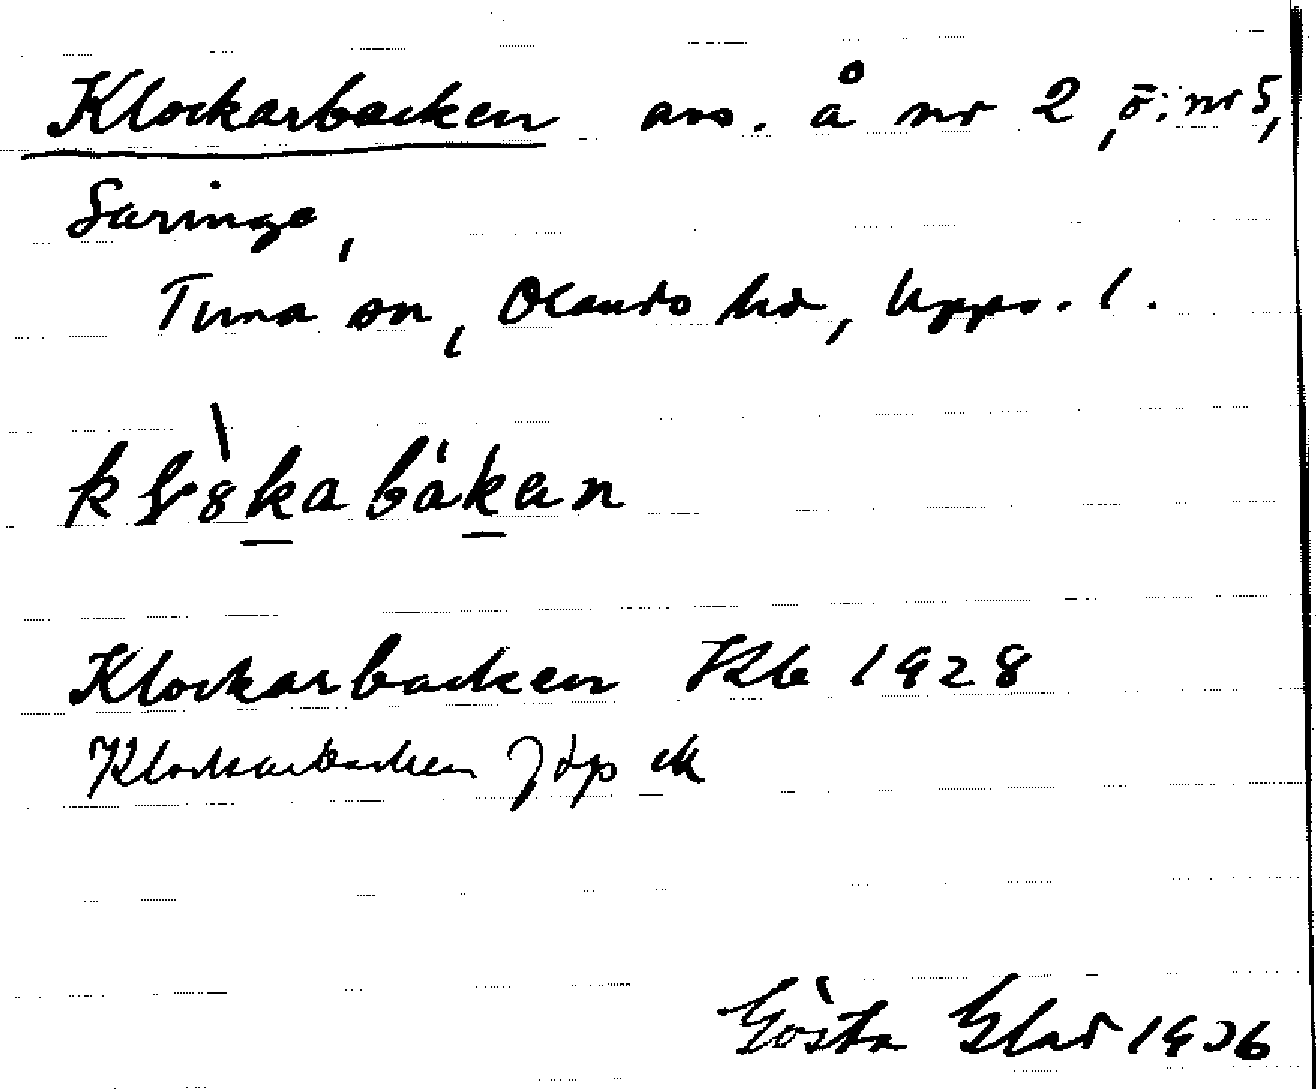 Klockarbacken avs. å nr 2, ö: nr 5,
Saringe,
Tuna sn, Olands hd, Upps. l.
Klockarbacken Kbl 1928
Klockarbacken Jöp ek
Gösta Glad 1936